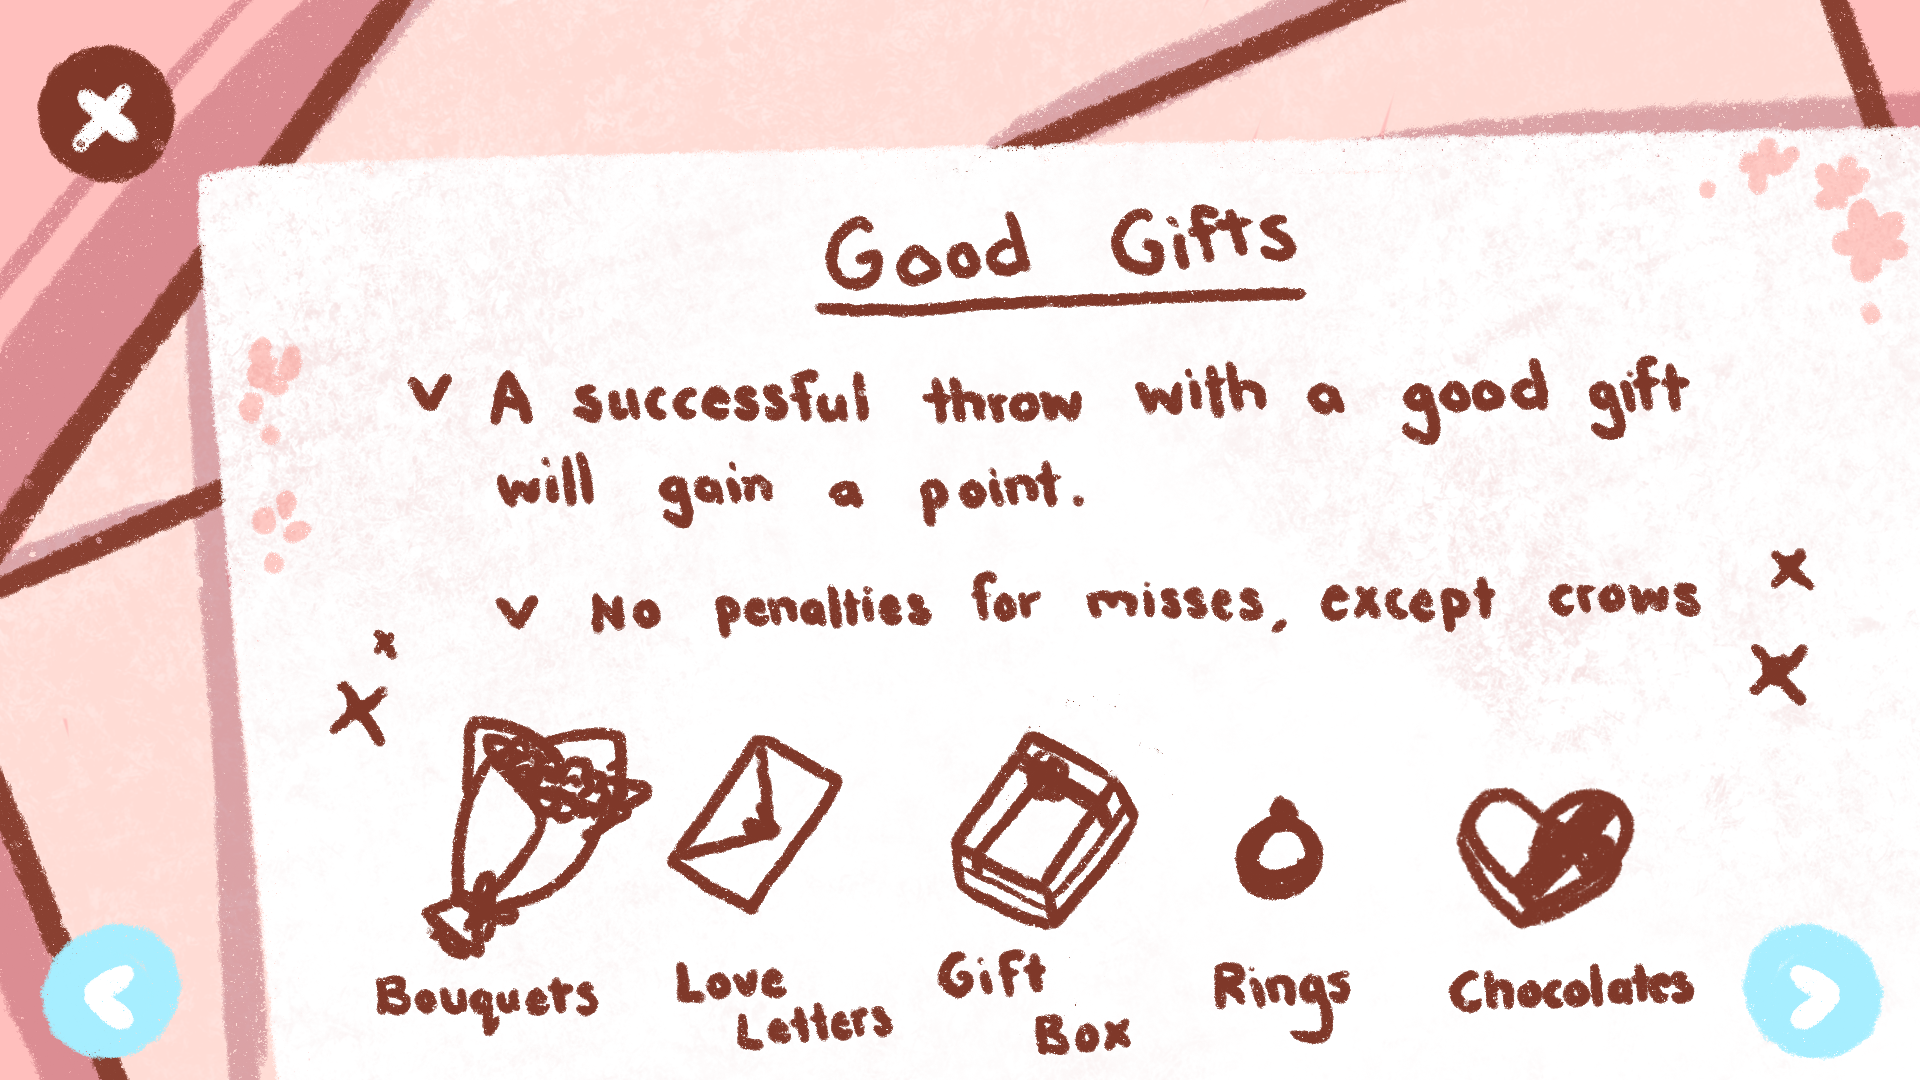 Good Gifts
A successful throw with a good gift
will gain a point.
No penalties for misses, except crows
Bouquets
Love
Letters
Gift
Box
Rings
Chocolates